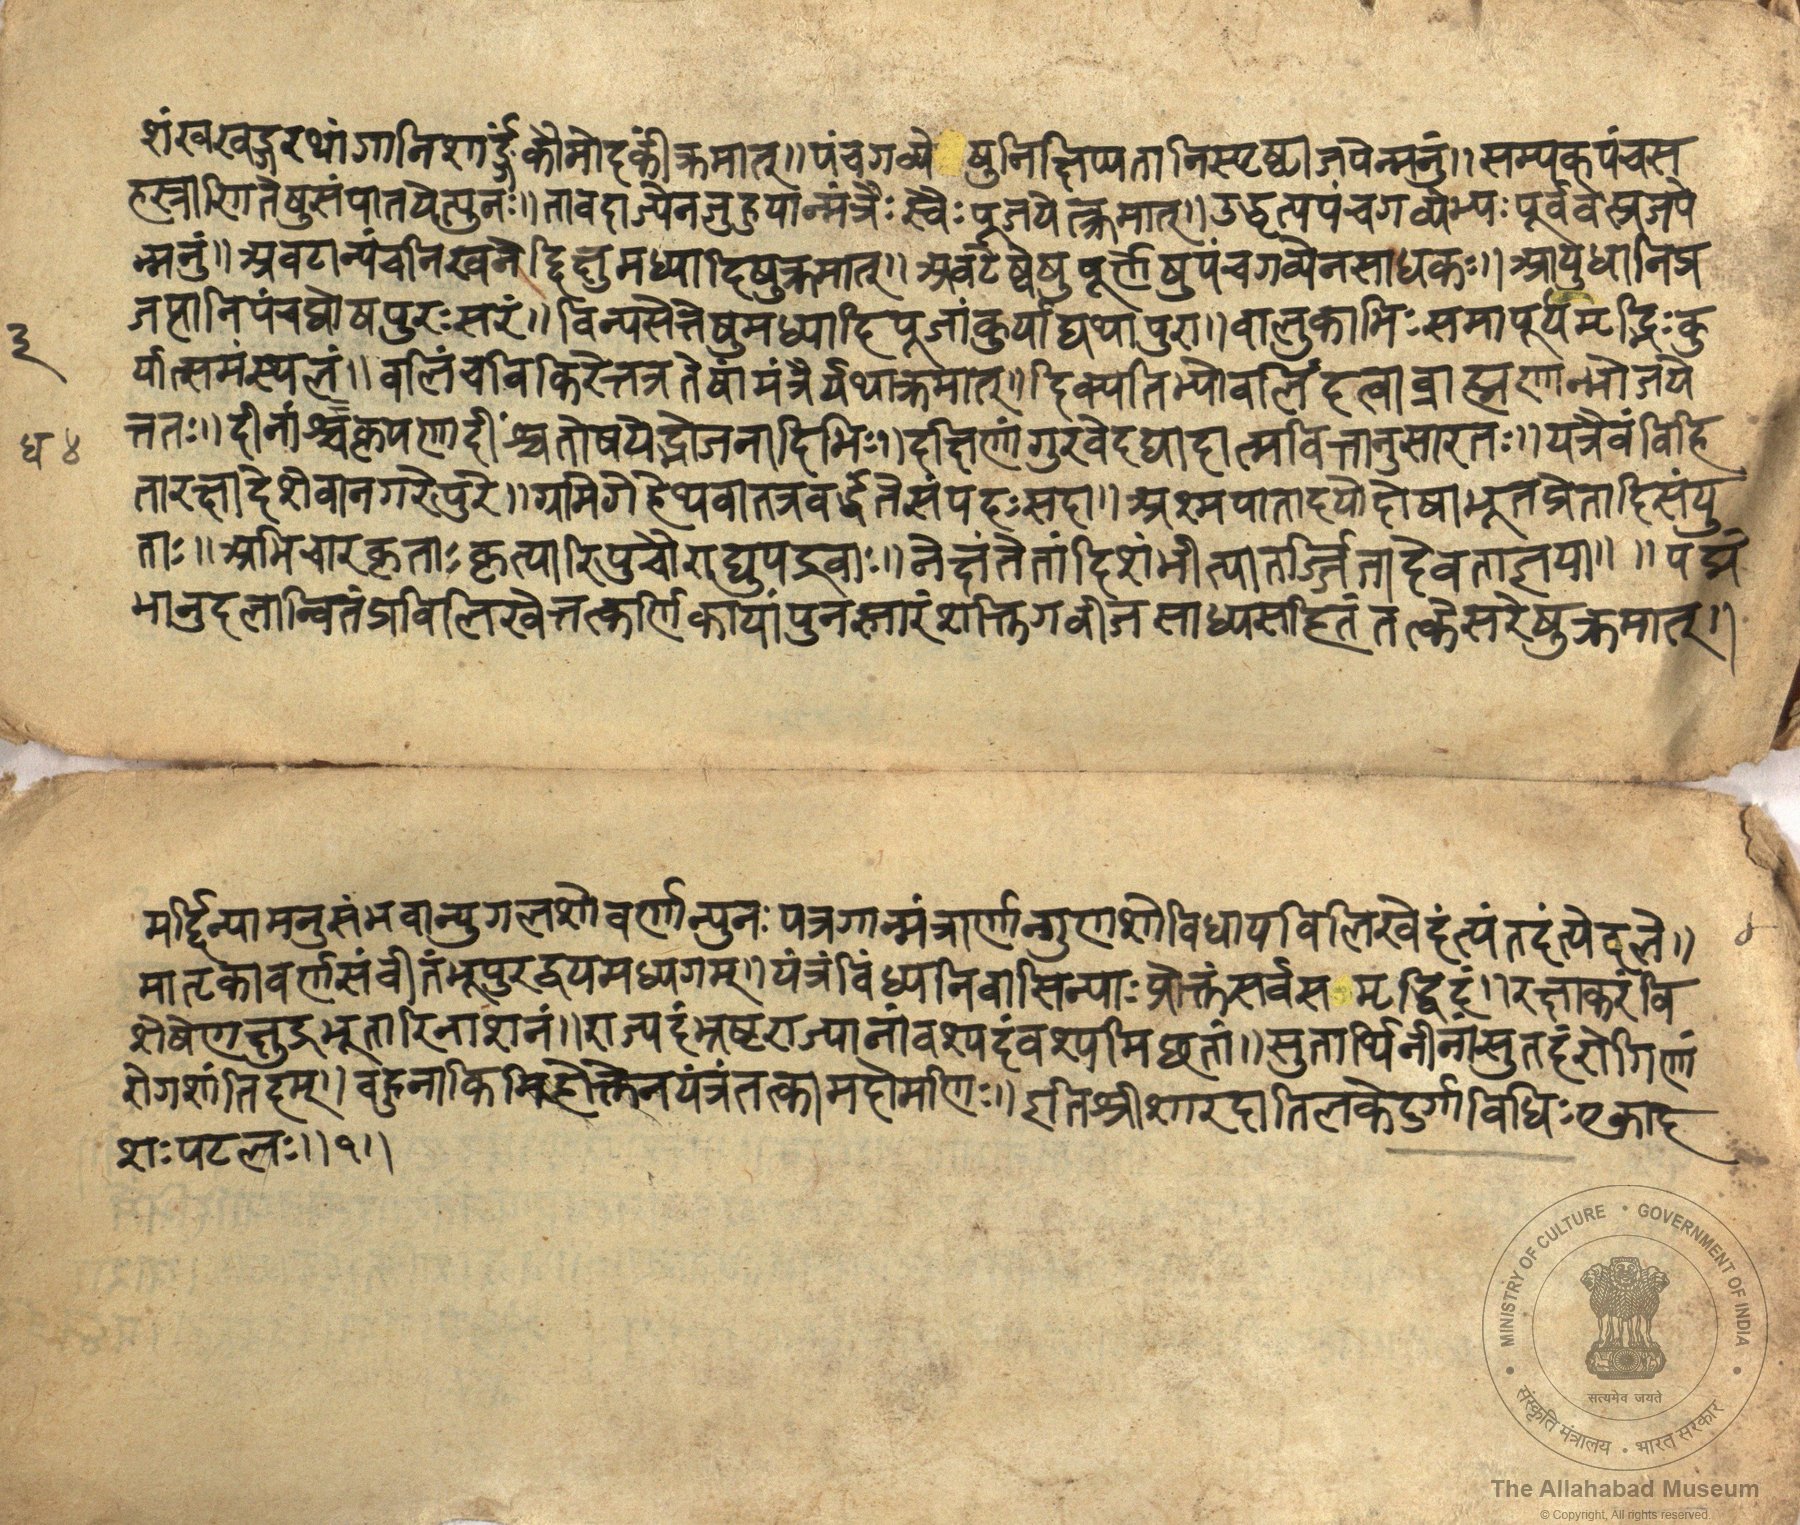 शंखखड्गरथांगानिशार्ङ्गंकौमोदकींक्रमात्॥पंचगव्ये षुनिक्षिप्यतानिस्पृष्ट्वाजपेन्मनुं॥सम्यक्पंचस
हस्राणितेषुसंपातयेत्पुनः॥तावदाज्येनजुहुयान्मंत्रैःस्वैःपूजयेत्क्रमात्॥उद्धृत्यपंचगव्येभ्यःपूर्ववत्प्रजपे
न्मनुं॥अवटान्पंचनिखनेद्दिक्षुमध्यादिषुक्रमात्॥अवटेष्वेषुपूर्णेषुपंचगव्येनसाधकः॥आयुधानिप्र
जप्तानिपंचघोषपुरःसरं॥विन्यसेत्तेषुमध्यादिपूजांकुर्याद्यथापुरा॥वालुकाभिःसमापूर्यमृद्भिःकु
र्यात्समंस्थलं॥वलिंचविकिरेत्तत्रतेषांमंत्रैर्यथाक्रमात्॥दिक्पतिभ्योवलिंदत्वाब्राह्मणान्भोजये
त्ततः॥दीनांश्चकृपणादींश्चतोषयेद्भोजनादिभिः॥दक्षिणांगुरवेदद्यादात्मवित्तानुसारतः॥यत्रैवंविहि
तारक्षादेशेवानगरेपुरे॥ग्रामेगेहेथवातत्रवर्द्धंतेसंपदःसदा॥अश्मपातादयोदोषाभूतप्रेतादिसंयु
ताः॥अभिचारकृताःकृत्यारिपुचौराद्युपद्रवाः॥नेक्षंतेतांदिशंभीत्यातर्ज्जितादेवताज्ञया॥ ॥पद्मं
भानुदलान्वितंप्रविलिखेत्तत्कर्णिकायांपुनस्तारंशक्तिगवीजसाध्यसहितंतत्केसरेषुक्रमात्॥
३
ध ४
मर्द्दिन्यामनुसंभवान्युगलशोवर्णान्पुनःपत्रगान्मंत्रार्णान्गुणशोविधायविलिखेदंत्यंतदंत्येदले॥
४
मातृकावर्णसंवीतंभूपुरद्वयमध्यगम्॥यंत्रंविंध्यनिवासिन्याःप्रोक्तंसर्वस मृद्धिदं॥रक्षाकरंवि
शेषेणक्षुद्रभूतारिनाशनं॥राज्यदंभ्रष्टराज्यानांवश्यदंवश्यमिछतां॥सुतार्थिनीनांसुतदंरोगिणां
रोगशांतिदम्॥वहुनाकिमिहोक्तेनयंत्रंतत्कामदोमणिः॥इतिश्रीशारदातिलकेदुर्गाविधिःएकाद
शःपटलः॥१॥
MINISTRY OF CULTURE • GOVERNMENT OF INDIA
सत्यमेव जयते
संस्कृति मंत्रालय • भारत सरकार
The Allahabad Museum
© Copyright, All rights reserved.